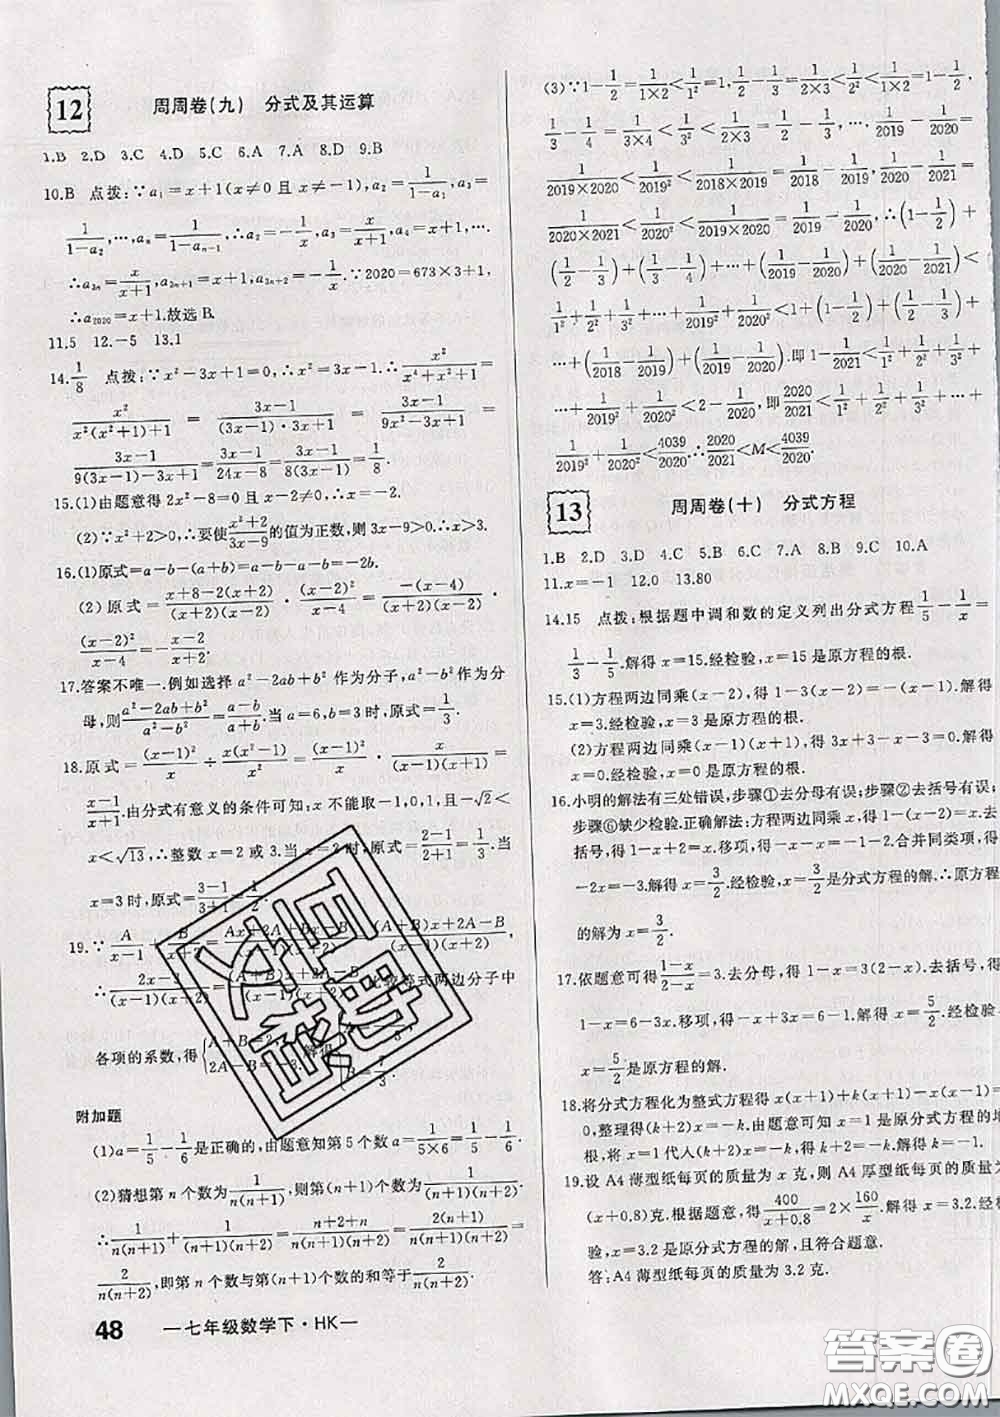 12 周周卷(九) 分式及其运算
1.B 2.D 3.C 4.D 5.C 6.A 7.A 8.D 9.B
10.B 点拨:∵a₁=x+1(x≠0且x≠-1),a₂=1/(1-a₁),a₃=
1/(1-a₂),…,aₙ=1/(1-aₙ₋₁),∴a₂=-1/x,a₃=x/(x+1),a₄=x+1,…
∴a₃ₙ=x/(x+1),a₃ₙ₊₁=x+1,a₃ₙ₊₂=-1/x.∵2020=673×3+1,
∴a₂₀₂₀=x+1.故选B.
11.5 12.-5 13.1
14.1/8 点拨:∵x²-3x+1=0,∴x²=3x-1.∴x²/(x⁴+x²+1)=
x²/(x²(x²+1)+1)=(3x-1)/((3x-1)·3x+1)=(3x-1)/(9x²-3x+1)=
(3x-1)/(9(3x-1)-3x+1)=(3x-1)/(24x-8)=(3x-1)/(8(3x-1))=1/8.
15.(1)由题意得2x²-8=0且x-2≠0,∴x=-2.
(2)∵x²+2>0,∴要使(x²+2)/(3x-9)的值为正数,则3x-9>0.∴x>3.
16.(1)原式=a-b-(a+b)=a-b-a-b=-2b.
(2)原式=(x+8-2(x+2))/((x+2)(x-2))·(x-2)²/(x-4)=-(x-4)/((x+2)(x-2))·
(x-2)²/(x-4)=-(x-2)/(x+2).
17.答案不唯一.例如选择a²-2ab+b²作为分子,a²-b²作为分
母,则(a²-2ab+b²)/(a²-b²)=(a-b)/(a+b).当a=6,b=3时,原式=1/3.
18.原式=(x-1)²/x÷x(x²-1)/x²=(x-1)²/x·x/((x-1)(x+1))=
(x-1)/(x+1).由分式有意义的条件可知,x不能取-1,0,1,且-√2<
x<√13,∴整数x=2或3.当x=2时,原式=(2-1)/(2+1)=1/3.当
x=3时,原式=(3-1)/(3+1)=1/2.
19.∵A/(x-1)+B/(x+2)=(Ax+2A+Bx-B)/((x-1)(x+2))=((A+B)x+2A-B)/((x-1)(x+2)),
∴(2x-3)/((x-1)(x+2))=((A+B)x+(2A-B))/((x-1)(x+2)).比较等式两边分子中
各项的系数,得{A+B=2, 2A-B=-3. 解得 B=7/3.
附加题
(1)a=1/5-1/6是正确的,由题意知第5个数a=1/(5×6)=1/5-1/6.
(2)猜想第n个数为1/(n(n+1)),则第(n+1)个数为1/((n+1)(n+2)).
∴1/(n(n+1))+1/((n+1)(n+2))=(n+2+n)/(n(n+1)(n+2))=2(n+1)/(n(n+1)(n+2))=
2/(n(n+2)),即第n个数与第(n+1)个数的和等于2/(n(n+2)).
(3)∵1-1/2=1/(1×2)<1/1²=1,1/2-1/3=1/(2×3)<1/2²<1/(1×2)=1-1/2,
1/3-1/4=1/(3×4)<1/3²<1/(2×3)=1/2-1/3,…,1/2019-1/2020=
1/(2019×2020)<1/2019²<1/(2018×2019)=1/2018-1/2019,1/2020-1/2021=
1/(2020×2021)<1/2020²<1/(2019×2020)=1/2019-1/2020,∴(1-1/2)+
(1/2-1/3)+(1/3-1/4)+…+(1/2019-1/2020)+(1/2020-1/2021)<
1/1²+1/2²+1/3²+…+1/2019²+1/2020²<1+(1-1/2)+(1/2-1/3)+
…+(1/2018-1/2019)+(1/2019-1/2020).即1-1/2021<1/1²+1/2²+1/3²+
…+1/2019²+1/2020²<2-1/2020,即2020/2021<1/1²+1/2²+1/3²+…+
1/2019²+1/2020²<4039/2020.∴2020/2021<M<4039/2020.
13 周周卷(十) 分式方程
1.B 2.D 3.D 4.C 5.B 6.C 7.A 8.B 9.C 10.A
11.x=-1 12.0 13.80
14.15 点拨:根据题中调和数的定义列出分式方程1/5-1/x=
1/3-1/5.解得x=15.经检验,x=15是原方程的根.
15.(1)方程两边同乘(x-2),得1-3(x-2)=-(x-1).解得
x=3.经检验,x=3是原方程的根.
(2)方程两边同乘(x-1)(x+1),得3x+3-x-3=0.解得
x=0.经检验,x=0是原方程的根.
16.小明的解法有三处错误,步骤①去分母有误;步骤②去括号有误;
步骤⑥缺少检验.正确解法:方程两边同乘x,得1-(x-2)=x.去
括号,得1-x+2=x.移项,得-x-x=-1-2.合并同类项,得
-2x=-3.解得x=3/2.经检验,x=3/2是分式方程的解.∴原方程
的解为x=3/2.
17.依题意可得(1-x)/(2-x)=3.去分母,得1-x=3(2-x).去括号,得
1-x=6-3x.移项,得-x+3x=6-1.解得x=5/2.经检验,
x=5/2是原方程的解.
18.将分式方程化为整式方程得x(x+1)+k(x+1)-x(x-1)=
0,整理得(k+2)x=-k.由题意可知x=1是原分式方程的增
根,将x=1代入(k+2)x=-k,得k+2=-k,解得k=-1.
19.设A4薄型纸每页的质量为x克,则A4厚型纸每页的质量为
(x+0.8)克.根据题意,得400/(x+0.8)=2×160/x.解得x=3.2.经检
验,x=3.2是原分式方程的解,且符合题意.
答:A4薄型纸每页的质量为3.2克.
48 —七年级数学下·HK—
答案圈
MXQE.COM